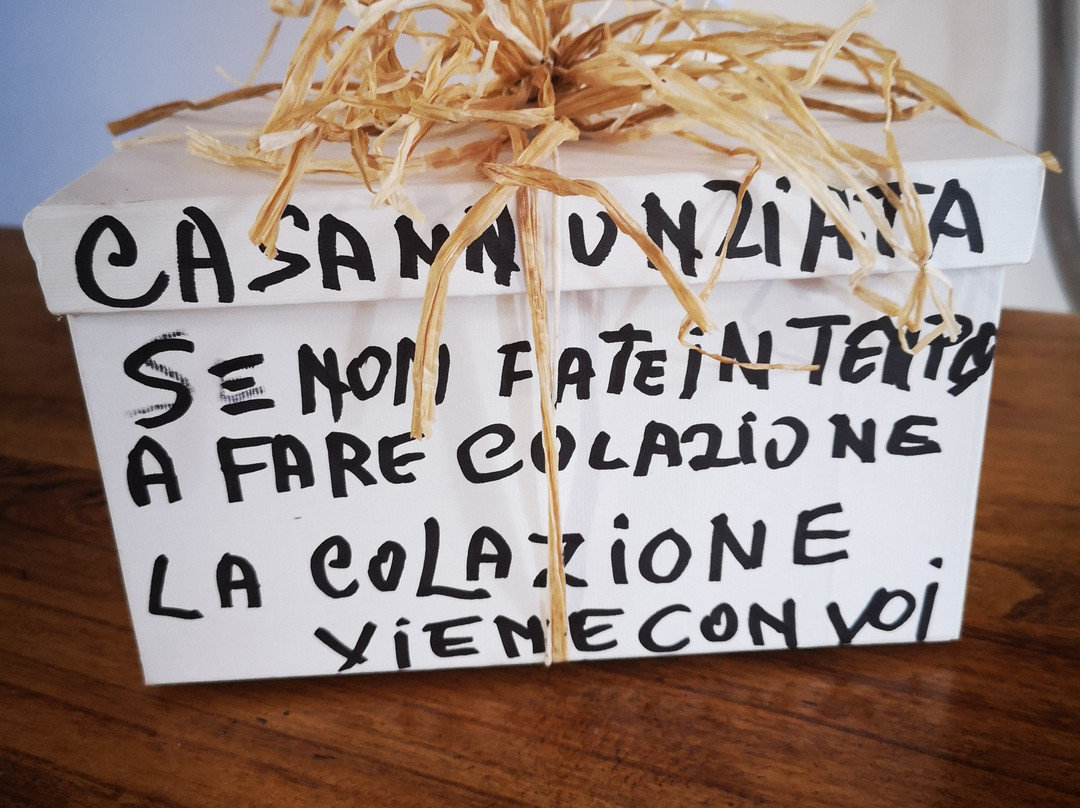 CASANNUNZIATA
SE NON FATE IN TEMPO
A FARE COLAZIONE
LA COLAZIONE
VIENE CON VOI